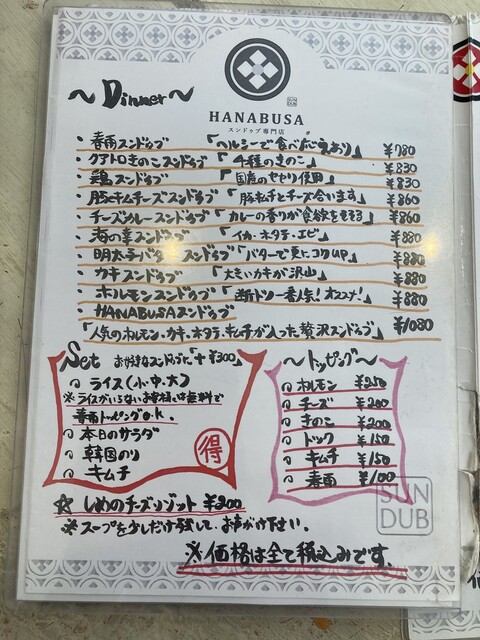 ~Dinner~
SUN DUB
HANABUSA
スンドゥブ専門店
・春雨スンドゥブ 「ヘルシーで食べ応えあり」 ¥780
・クアトロきのこスンドゥブ 「4種のきのこ」 ¥830
・鶏スンドゥブ 「国産のセセリ使用」 ¥830
・豚キムチチーズスンドゥブ 「豚キムチとチーズ合います」 ¥860
・チーズカレースンドゥブ 「カレーの香りが食欲をそそる」 ¥860
・海の幸スンドゥブ 「イカ・ホタテ・エビ」 ¥880
・明太子バタースンドゥブ 「バターで更にコクUP」 ¥880
・カキスンドゥブ 「大きいカキが沢山」 ¥880
・ホルモンスンドゥブ 「断トツ一番人気!オススメ!」 ¥880
・HANABUSAスンドゥブ
「人気のホルモン・カキ・ホタテ・キムチが入った贅沢スンドゥブ」 ¥1080
Set お好きなスンドゥブに「+¥300」
ライス(小・中・大)
※ライスがいらないお客様は無料で
春雨トッピングO.K.
本日のサラダ
韓国のり
キムチ
得
~トッピング~
ホルモン ¥250
チーズ ¥200
きのこ ¥200
トック ¥150
キムチ ¥150
春雨 ¥100
SUN
DUB
☆しめのチーズリゾット ¥200
※スープを少しだけ残して、お声がけ下さい。
※価格は全て税込みです。